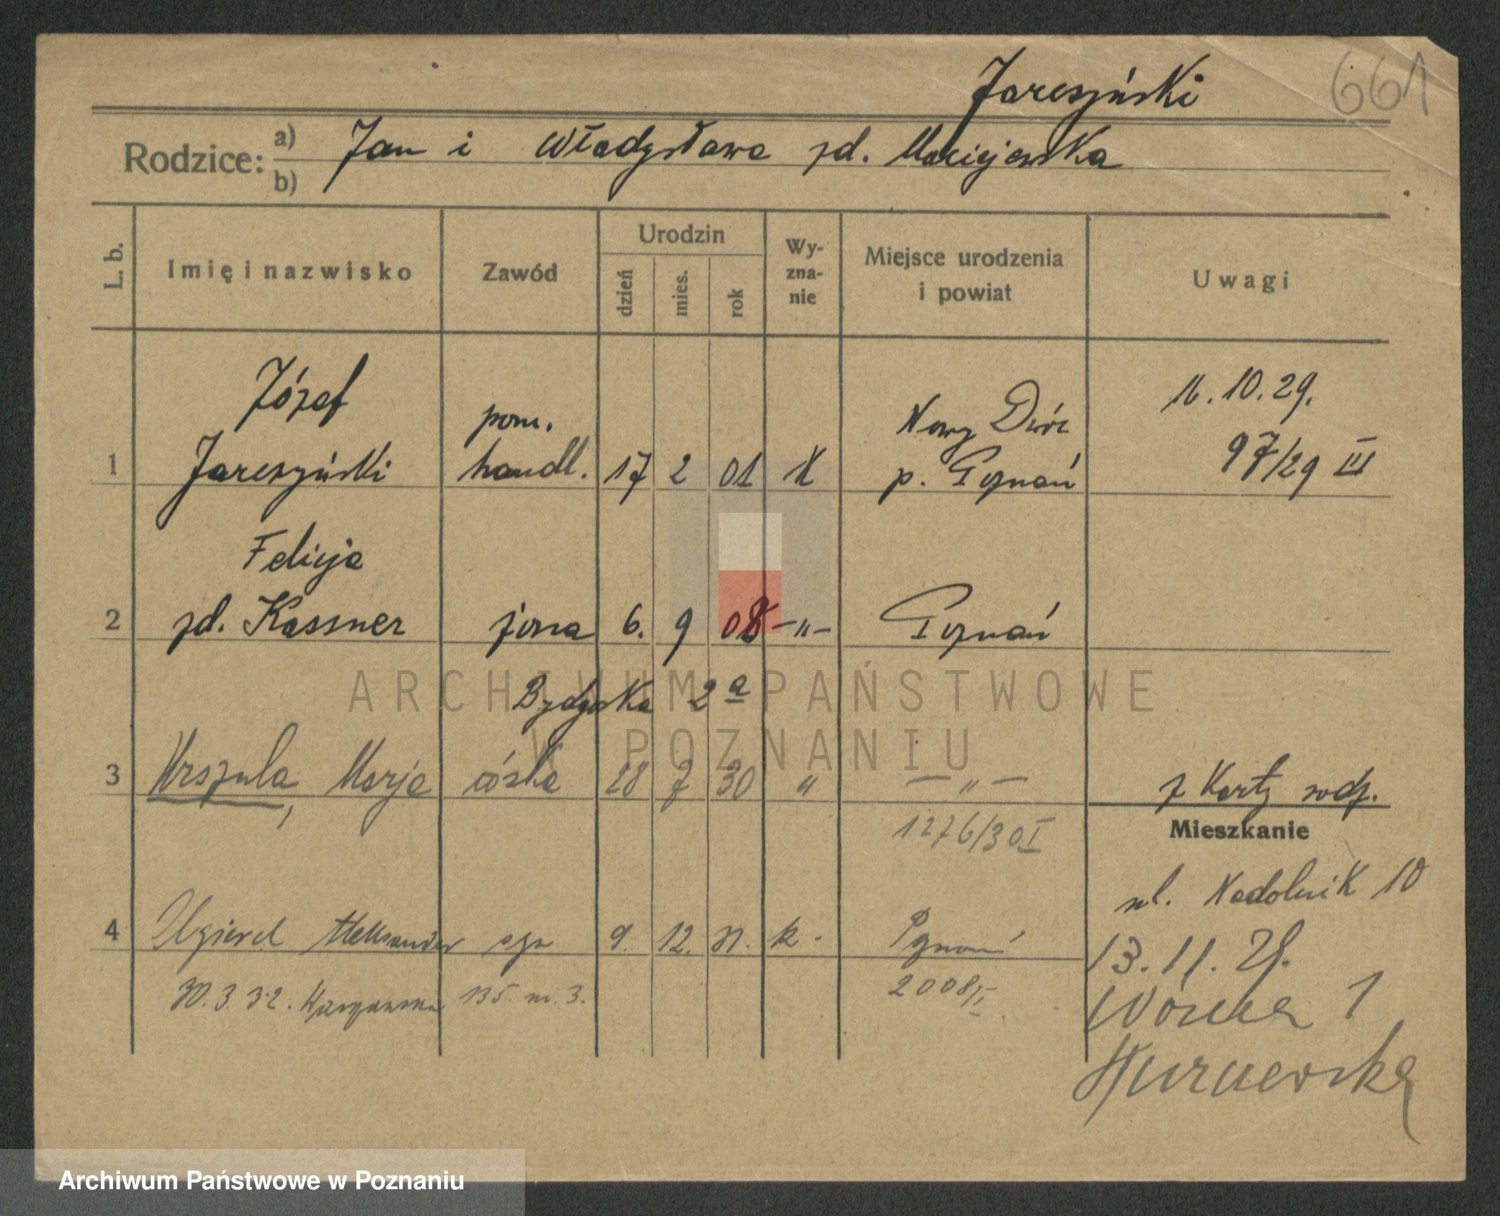 661
Jareszyński
Rodzice: a) Jan i Władysława zd. Maciejewska
b)
L. b. Imię i nazwisko Zawód Urodzin dzień mies. rok Wyznanie Miejsce urodzenia i powiat Uwagi
Józef pom. Nowy Dwór 16.10.29.
1 Jareszyński handl. 17 2 01 K p. Poznań 97/29 III
Felicja
2 zd. Kassner żona 6. 9 08 -"- Poznań
Bydgska 2a
3 Urszula, Marja córka 28 7 30 " -"- z Karty rodz.
1276/30 I
Mieszkanie
ul. Nadolnik 10
4 Aleksander syn 9. 12. 31. k. Poznań
13.11.29.
30.3.32. Warszawska 135 m. 3. 2008/II
Wózna 1
ARCHIWUM PAŃSTWOWE
W POZNANIU
Archiwum Państwowe w Poznaniu